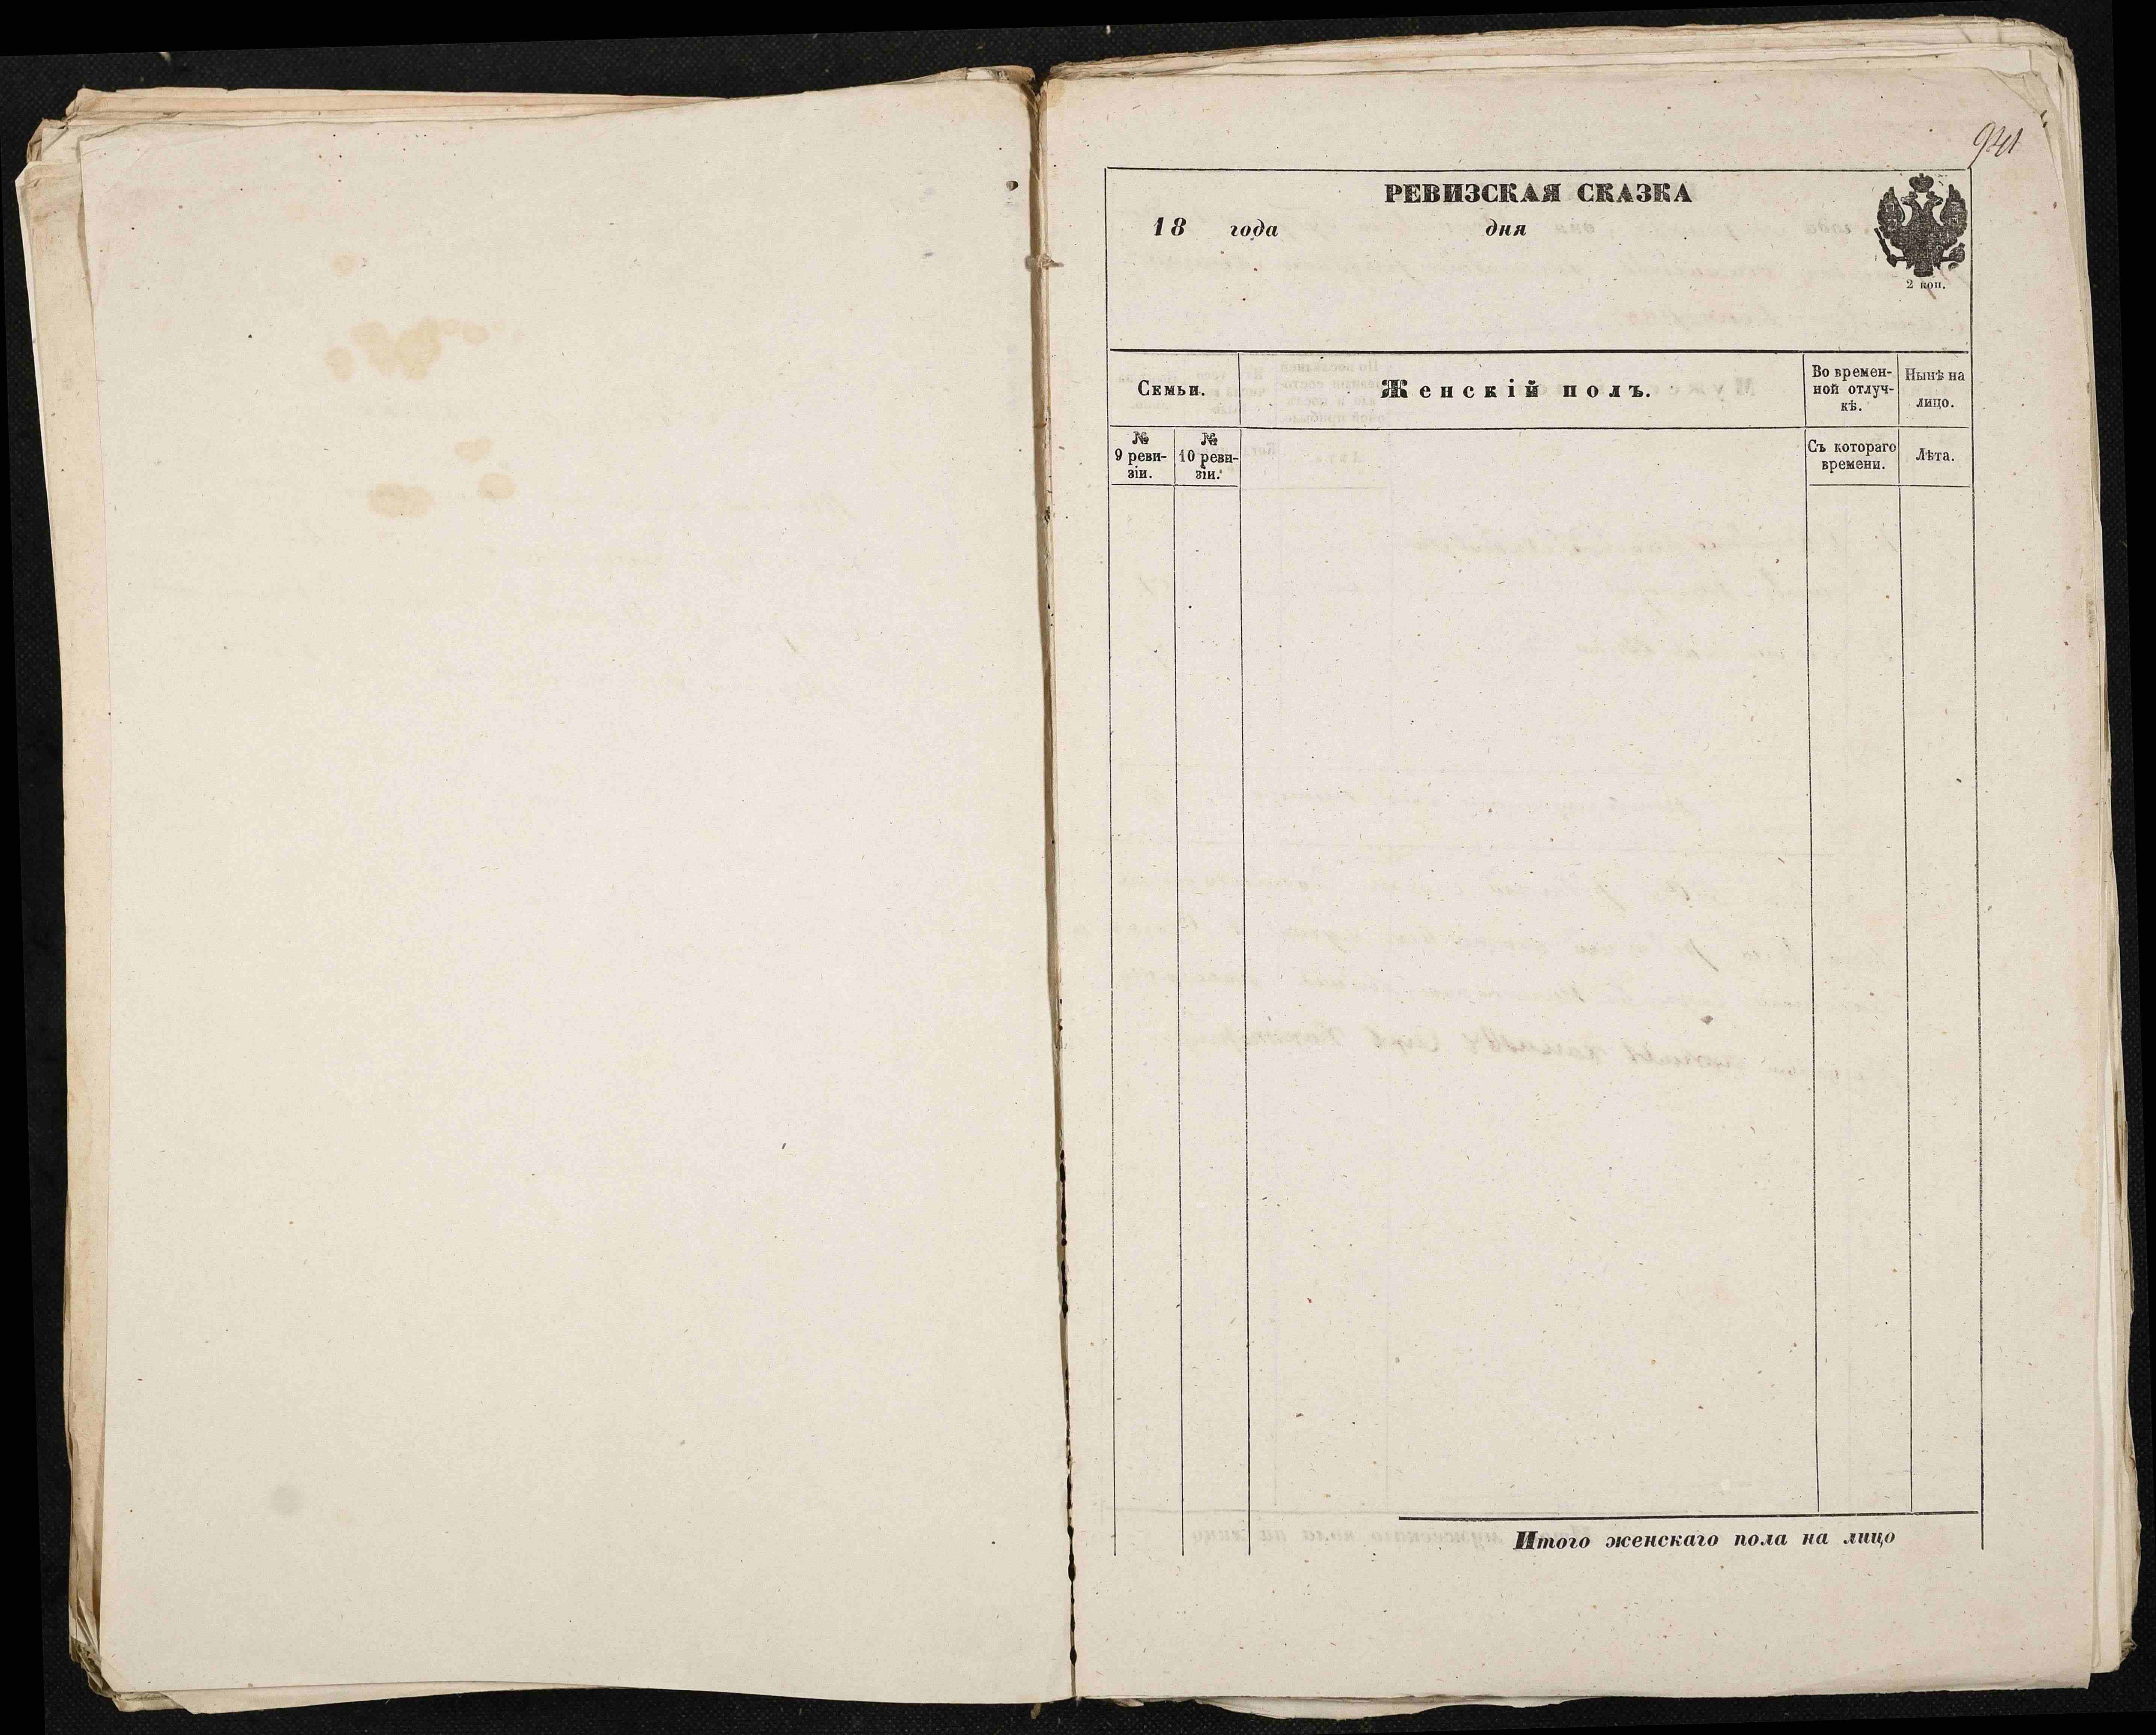 941
РЕВИЗСКАЯ СКАЗКА
18 года дня
2 коп.
Семьи.
Женскій полъ.
Во времен-
ной отлуч-
кѣ.
Нынѣ на
лицо.
№
9 реви-
зіи.
№
10 реви-
зіи.
Съ котораго
времени.
Лѣта.
Итого женскаго пола на лицо